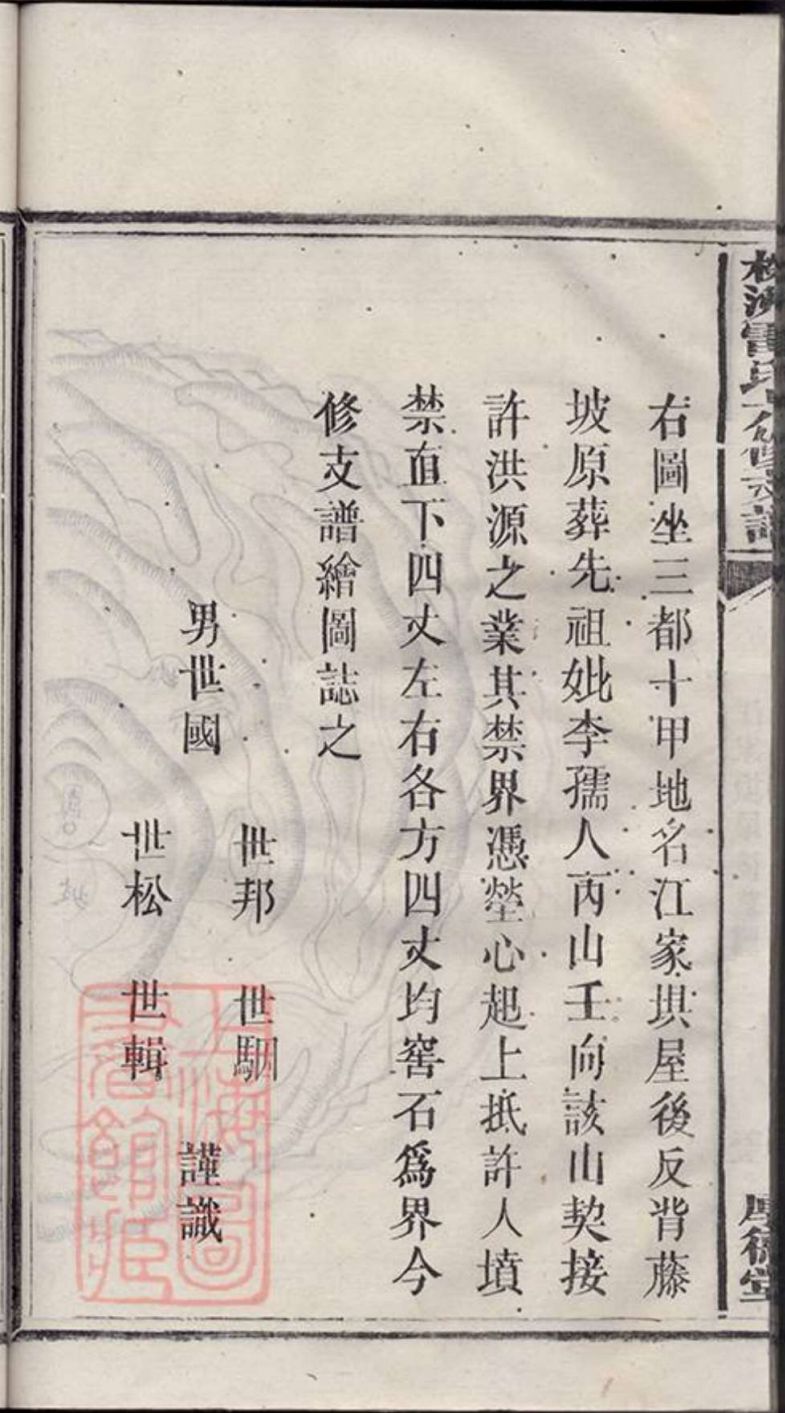 右圖坐三都十甲地名江家垻屋後反背藤
坡原葬先祖妣李孺人丙山壬向該山契接
許洪源之業其禁界憑塋心起上抵許人墳
禁直下四丈左右各方四丈均窖石爲界今
修支譜繪圖誌之
世邦 世馹
男世國 謹識
世松 世輯
厚德堂
上海圖書館藏